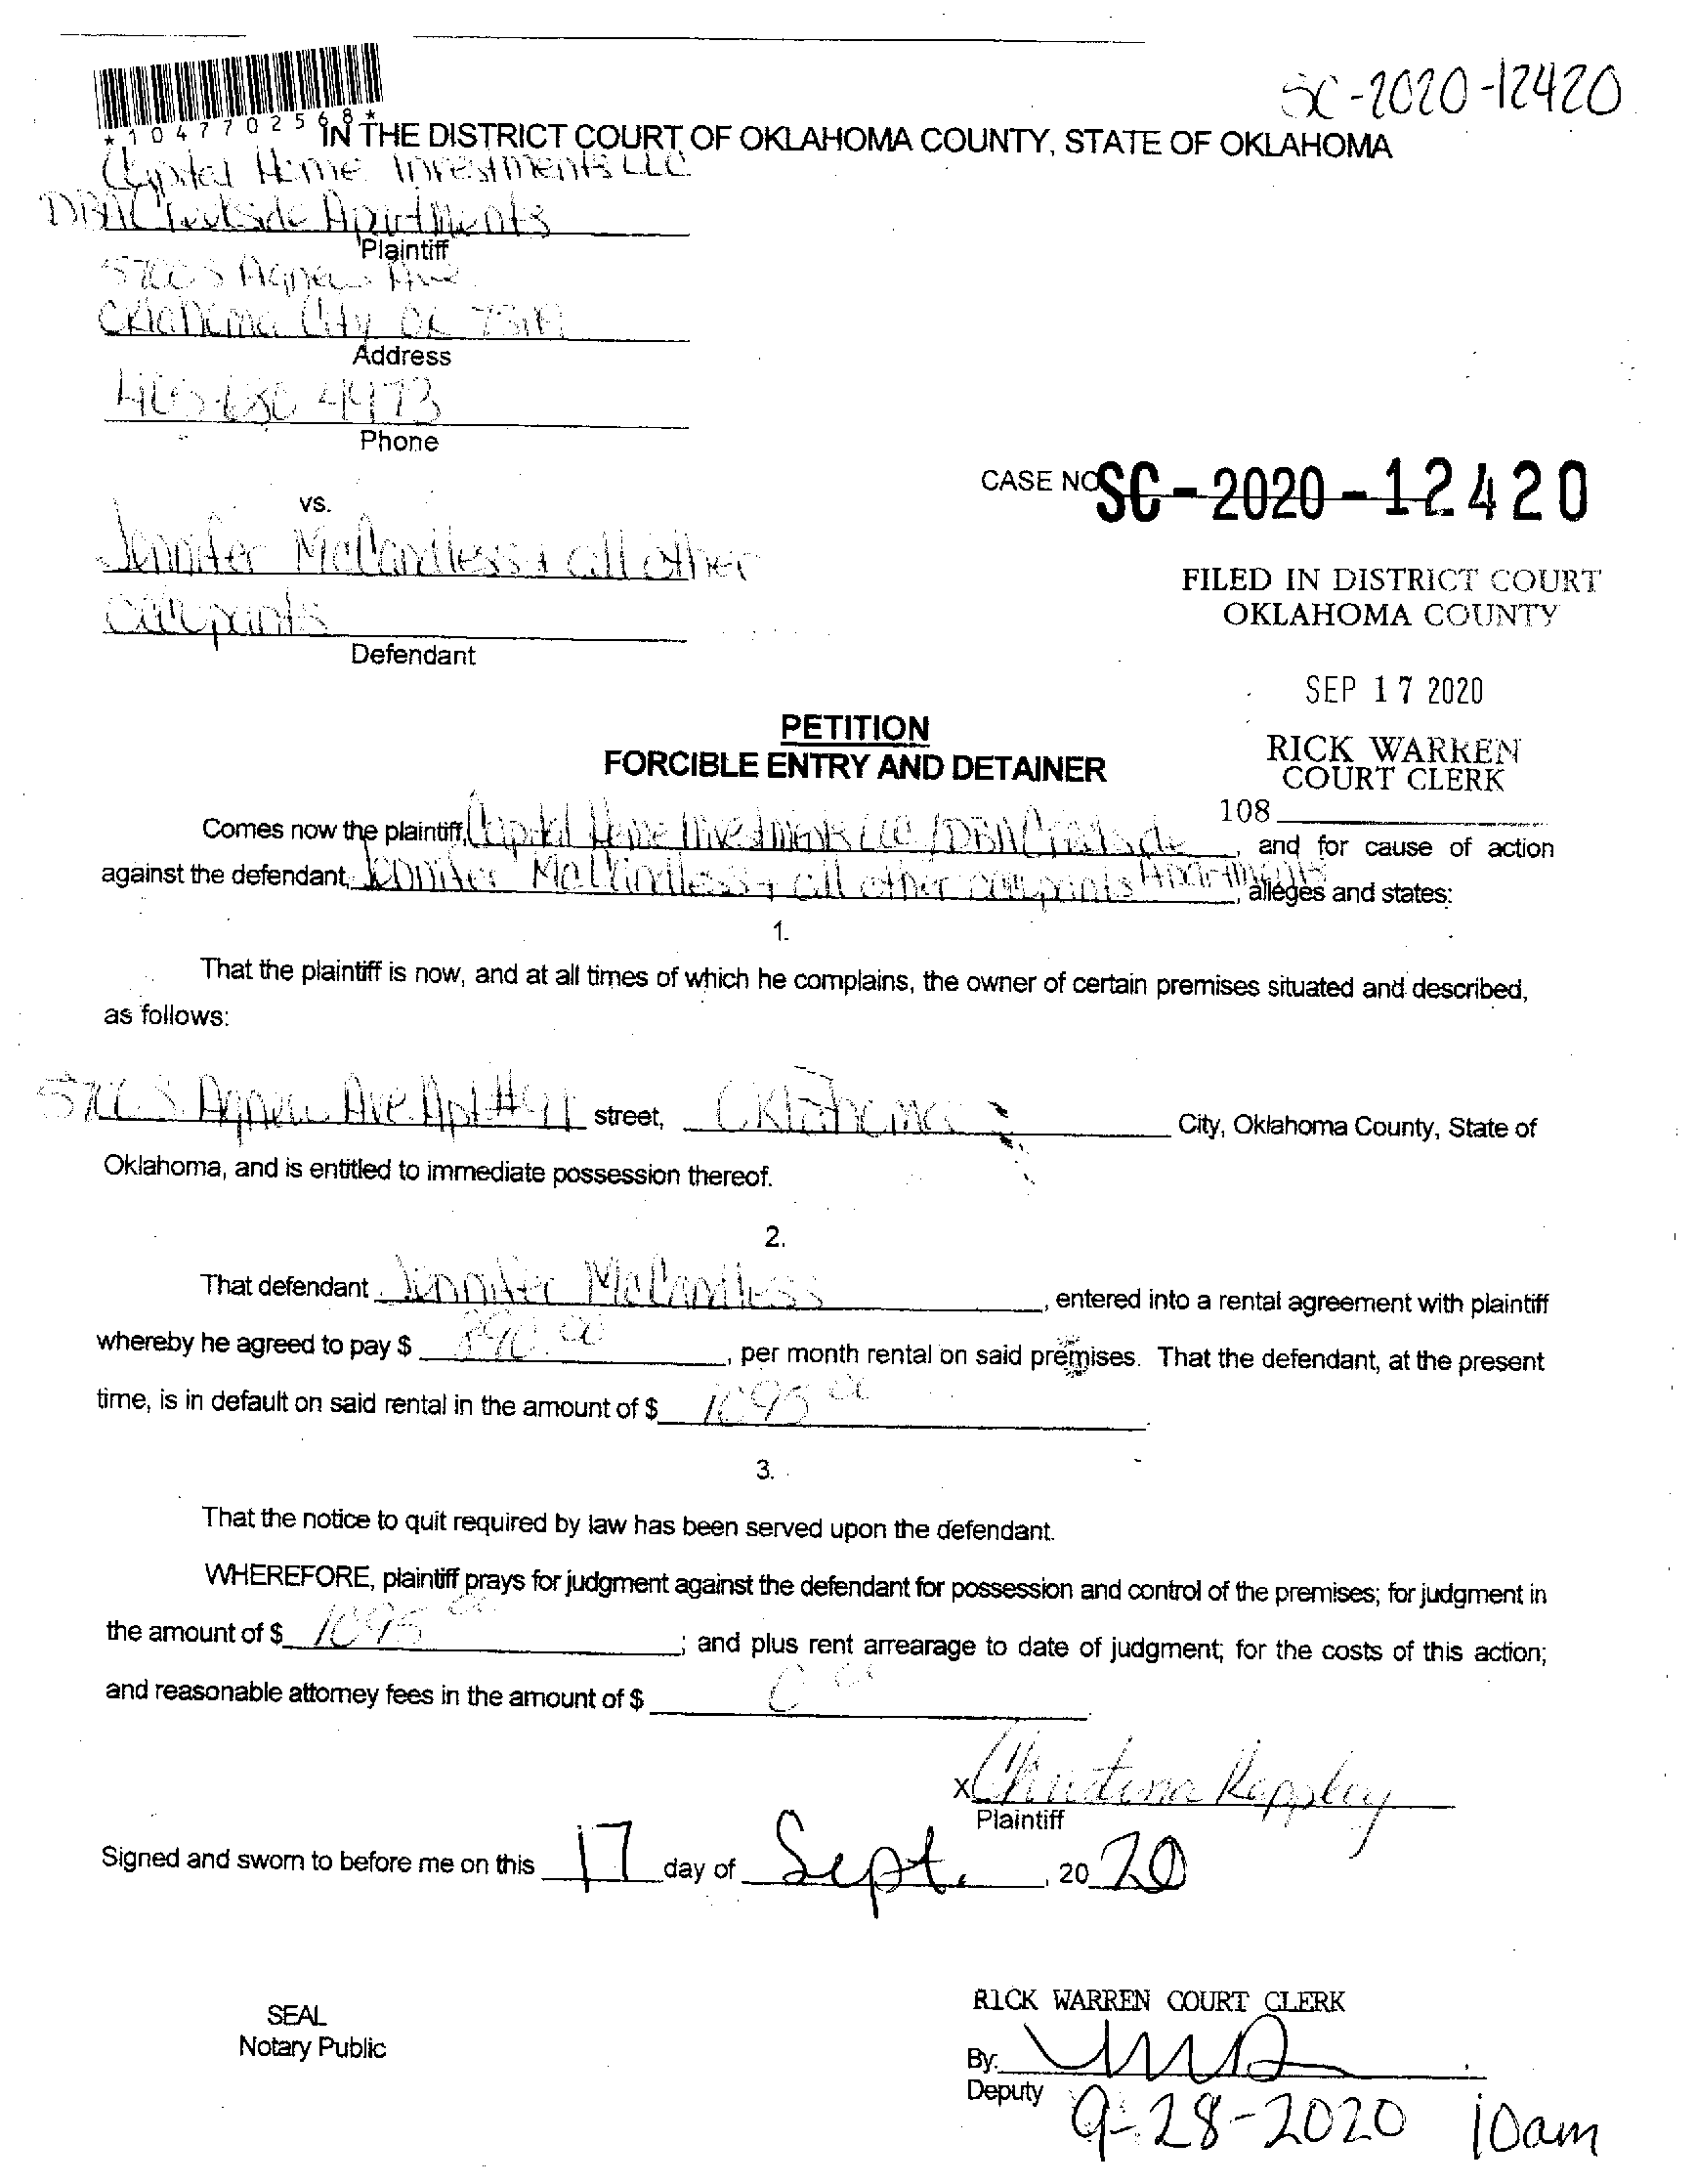 SC-2020-12420
*1047702568*
IN THE DISTRICT COURT OF OKLAHOMA COUNTY, STATE OF OKLAHOMA
Capital Home Investments LLC
DBA Creekside Apartments
Plaintiff
5700 S Agnew Ave
Oklahoma City OK 73119
Address
405 4473
Phone
CASE NO SC-2020-12420
vs.
Jennifer McCandless + all other
occupants
Defendant
FILED IN DISTRICT COURT
OKLAHOMA COUNTY
SEP 17 2020
RICK WARREN
COURT CLERK
108
PETITION
FORCIBLE ENTRY AND DETAINER
Comes now the plaintiff, Capital Home Investments LLC/DBA Creekside Apartments, and for cause of action
against the defendant, Jennifer McCandless + all other occupants, alleges and states:
1.
That the plaintiff is now, and at all times of which he complains, the owner of certain premises situated and described,
as follows:
5700 S Agnew Ave Apt # street, Oklahoma City, Oklahoma County, State of
Oklahoma, and is entitled to immediate possession thereof.
2.
That defendant Jennifer McCandless, entered into a rental agreement with plaintiff
whereby he agreed to pay $ 890.00, per month rental on said premises. That the defendant, at the present
time, is in default on said rental in the amount of $ 1095 00.
3.
That the notice to quit required by law has been served upon the defendant.
WHEREFORE, plaintiff prays for judgment against the defendant for possession and control of the premises; for judgment in
the amount of $ 1095 00; and plus rent arrearage to date of judgment; for the costs of this action;
and reasonable attorney fees in the amount of $ 0 00
X Christina Reppley
Plaintiff
Signed and sworn to before me on this 17 day of Sept., 20 20
SEAL
Notary Public
RICK WARREN COURT CLERK
By:
Deputy
9-28-2020 10am